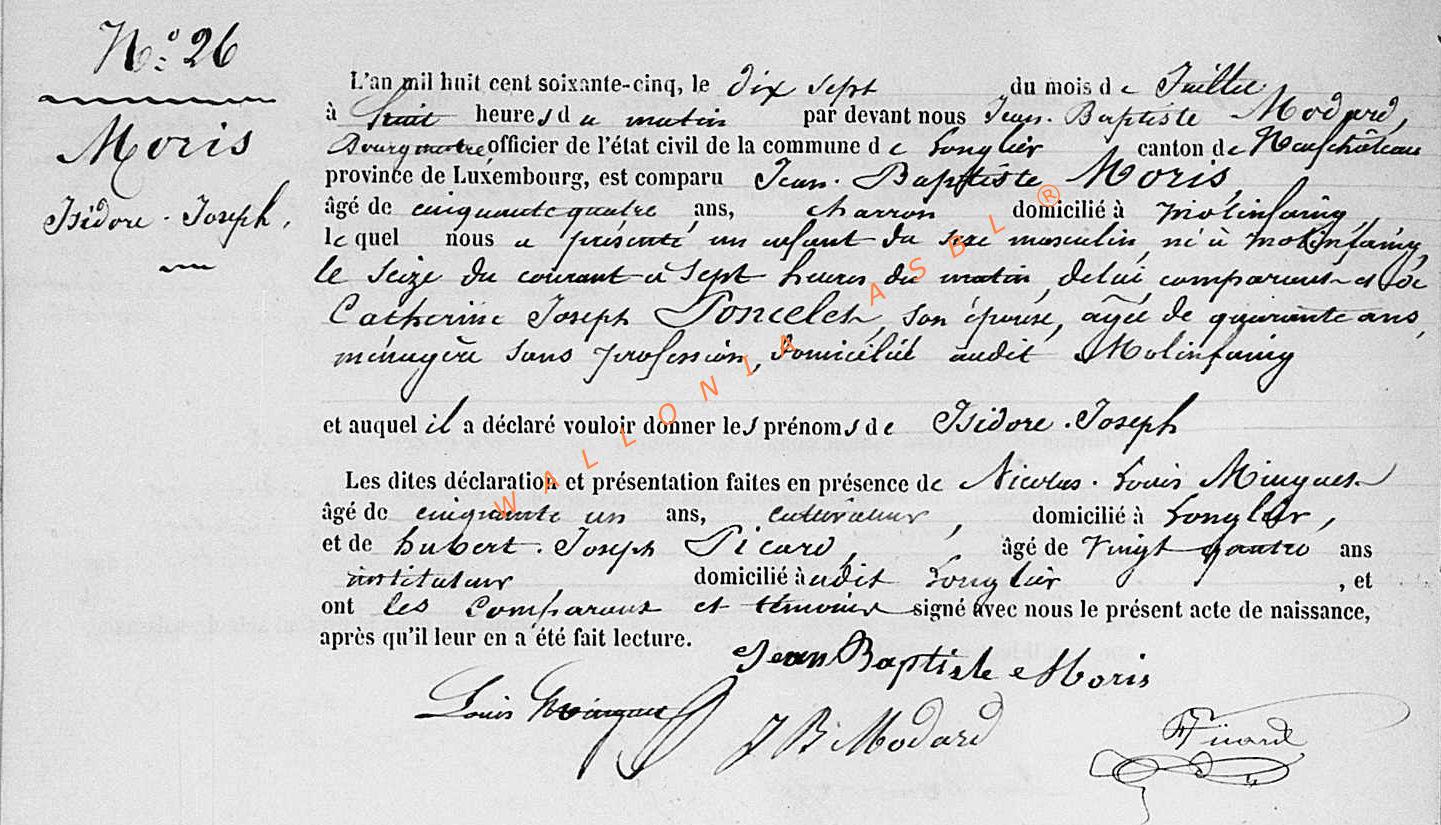 N° 26
Moris
Isidore-Joseph.
L'an mil huit cent soixante-cinq, le dix sept du mois de Juillet
à huit heures du matin par devant nous Jean-Baptiste Modard,
Bourgmestre, officier de l'état civil de la commune de Longlier canton de Neufchâteau
province de Luxembourg, est comparu Jean-Baptiste Moris,
âgé de cinquante quatre ans, charron domicilié à Molinfaing,
lequel nous a présenté un enfant du sexe masculin, né à Molinfaing,
le seize du courant à sept heures du matin, de lui comparant et de
Catherine Joseph Poncelet, son épouse, agée de quarante ans,
ménagère sans profession, domiciliée audit Molinfaing
et auquel il a déclaré vouloir donner les prénoms de Isidore-Joseph
Les dites déclaration et présentation faites en présence de Nicolas-Louis
âgé de cinquante un ans, cultivateur, domicilié à Longlier,
et de hubert-Joseph Picard, âgé de Vingt quatre ans
instituteur domicilié audit Longlier, et
ont les Comparant et témoins signé avec nous le présent acte de naissance,
après qu'il leur en a été fait lecture.
Jean Baptiste Moris
Louis
J B Modard
Picard
WALLONIA ASBL ®